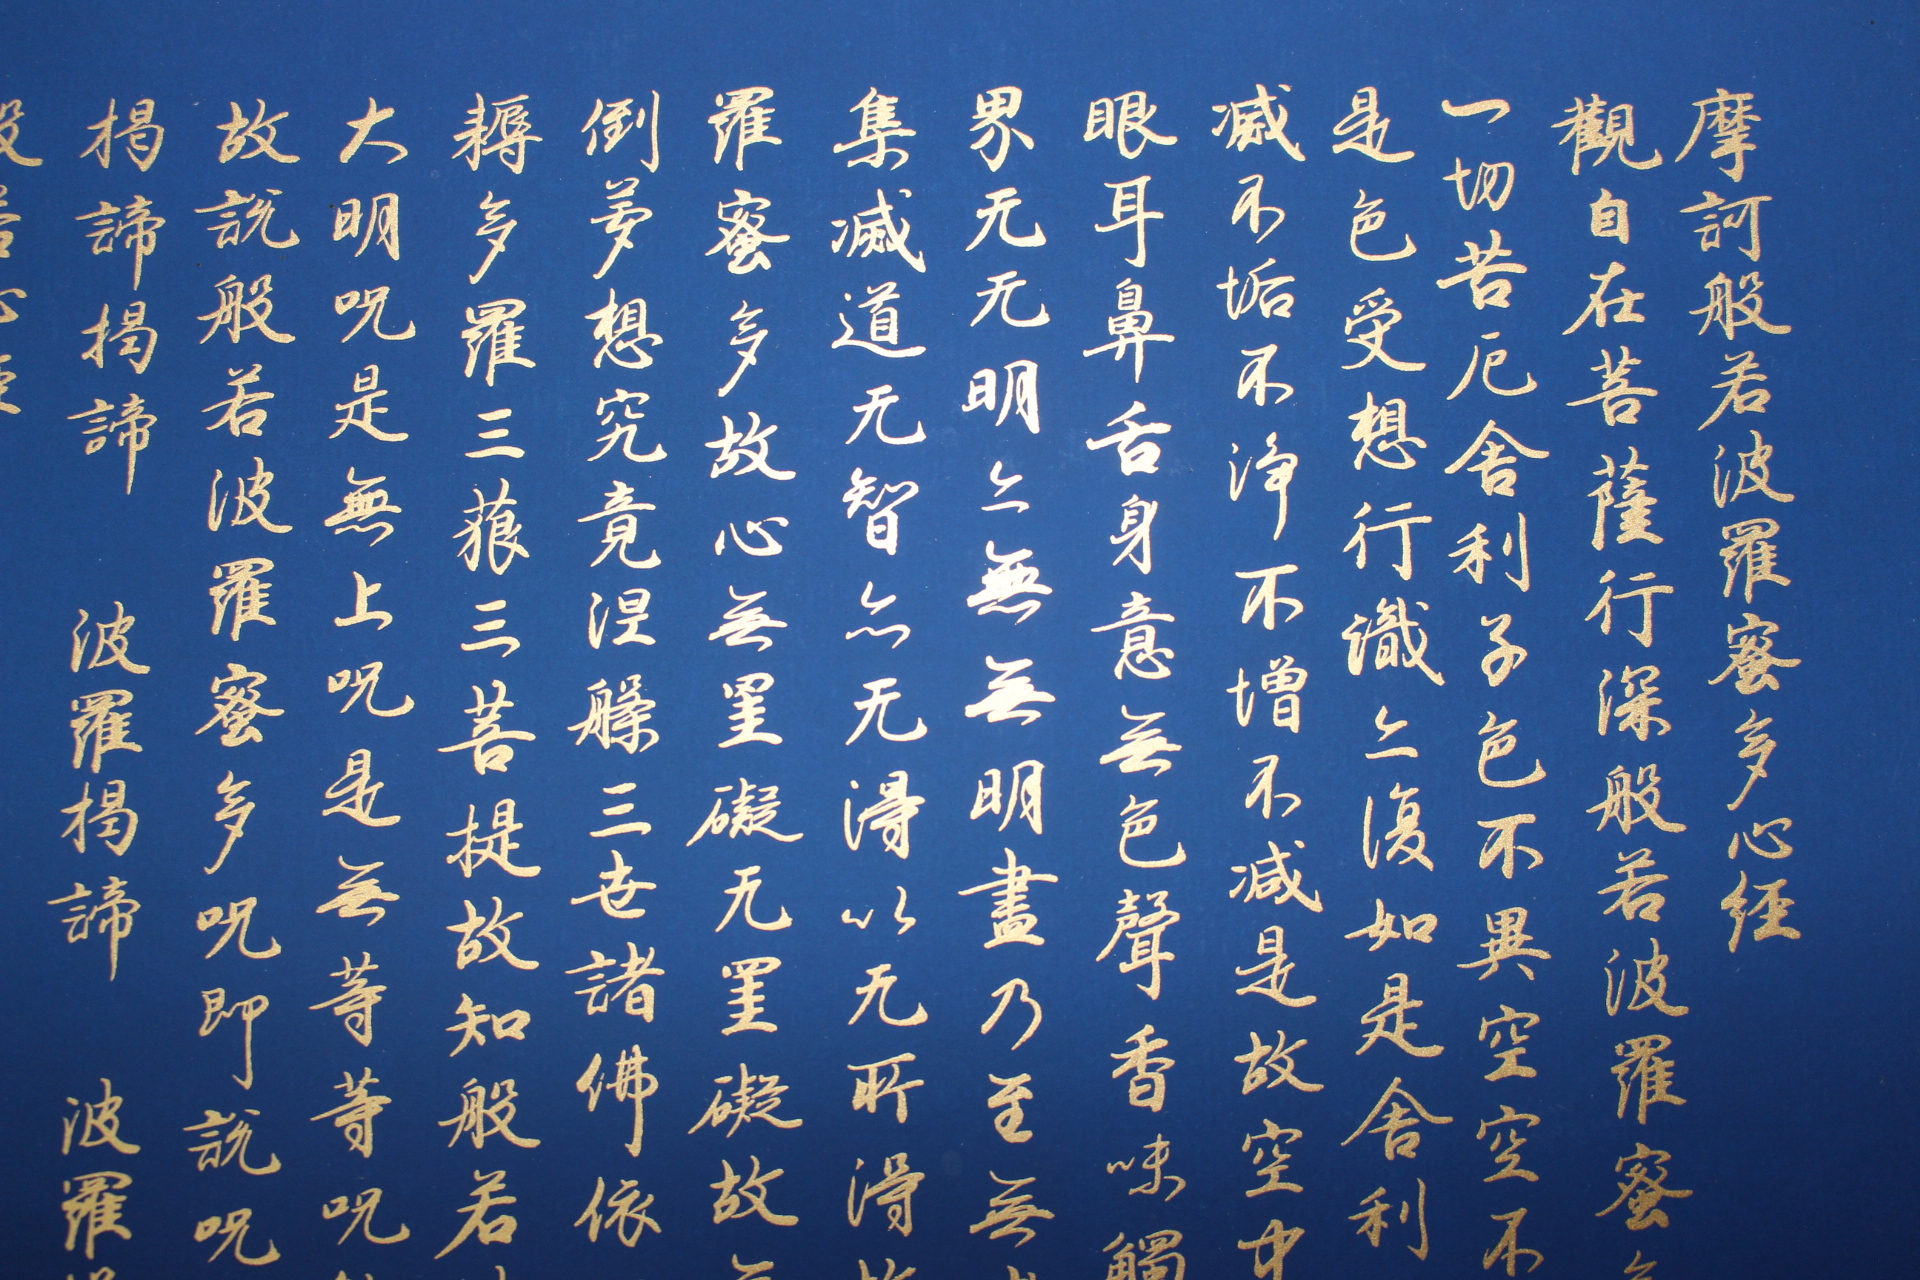 摩訶般若波羅蜜多心経
觀自在菩薩行深般若波羅蜜
一切苦厄舍利子色不異空空不
是色受想行識亦復如是舍利
滅不垢不淨不增不減是故空中
眼耳鼻舌身意無色聲香味觸
界无无明亦無無明盡乃至無
集滅道无智亦无得以无所得故
羅蜜多故心無罣礙无罣礙故無
倒夢想究竟涅槃三世諸佛依
耨多羅三藐三菩提故知般若
大明呪是無上呪是無等等呪
故説般若波羅蜜多呪即説呪
揭諦揭諦 波羅揭諦 波羅
般若心経